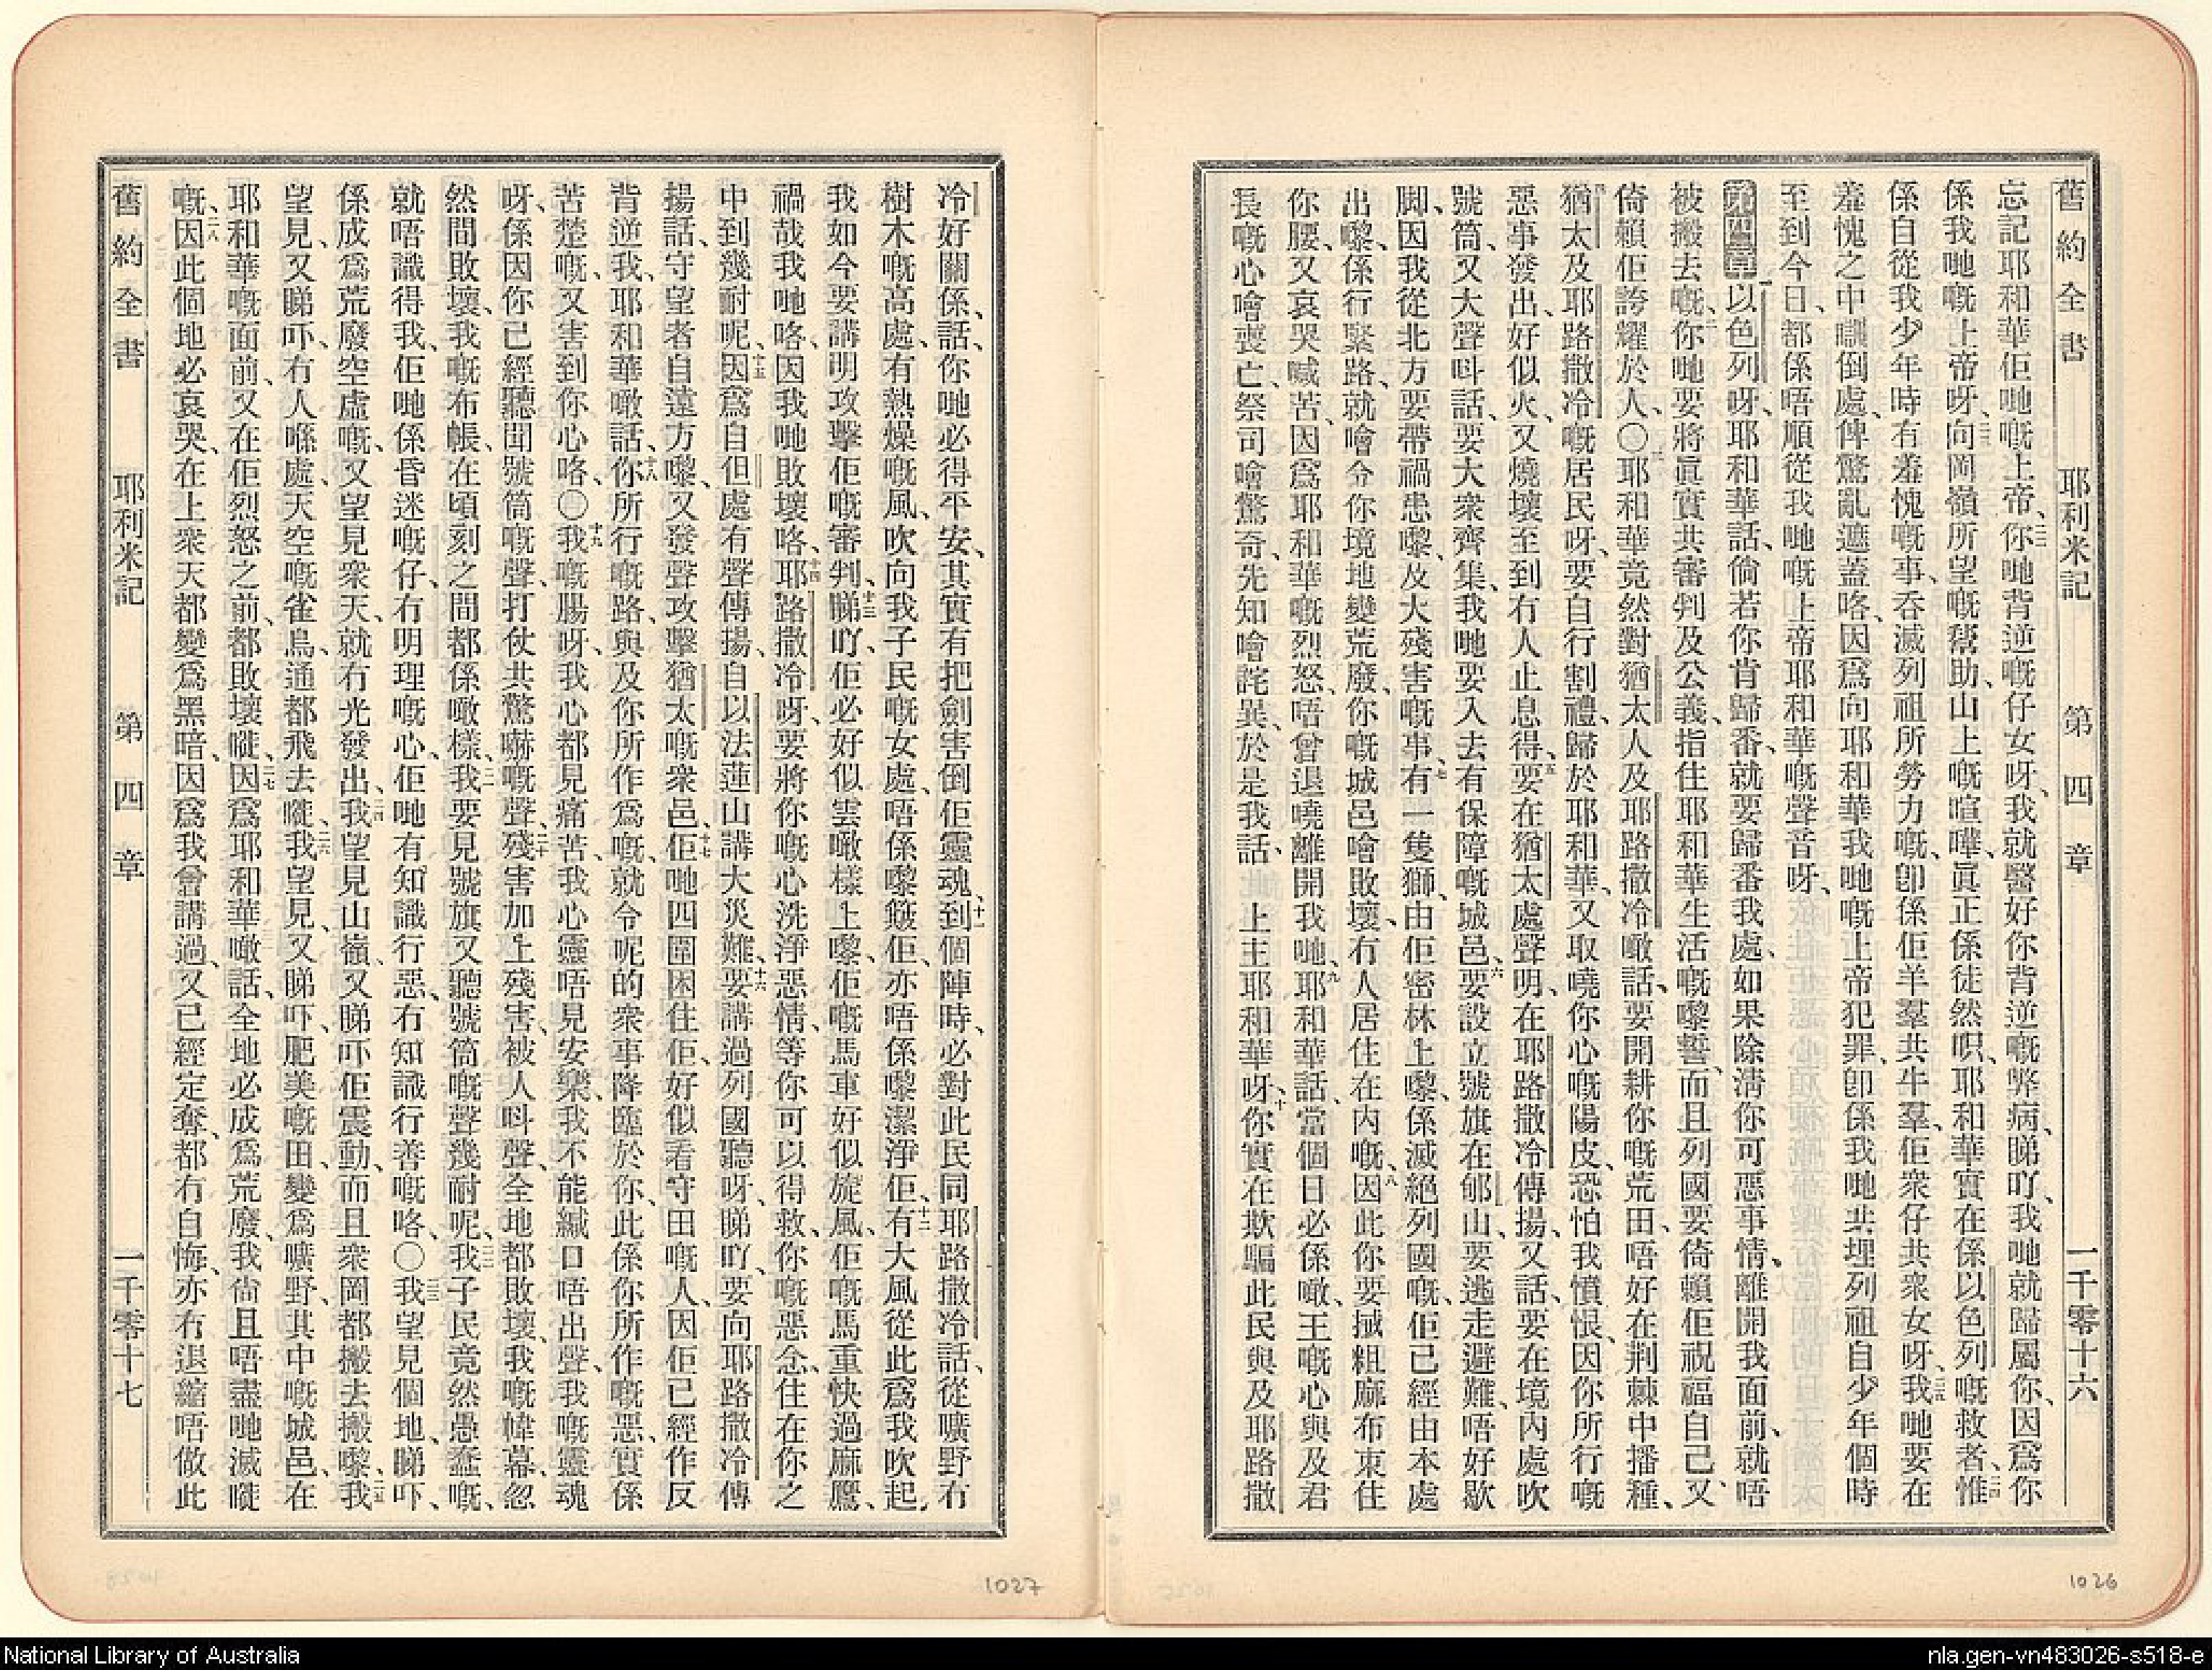 舊約全書 耶利米記 第四章 一千零十六
忘記耶和華佢哋嘅上帝、二二你哋背逆嘅仔女呀、我就醫好你背逆嘅弊病、睇吖、我哋就歸屬你、因爲你
係我哋嘅上帝呀、二三向岡嶺所望嘅幫助、山上嘅喧嘩、眞正係徒然呮、耶和華實在係以色列嘅救者、二四惟
係自從我少年時有羞愧嘅事、吞滅列祖所勞力嘅、卽係佢羊羣共牛羣、佢衆仔共衆女呀、二五我哋要在
羞愧之中瞓倒處、俾驚亂遮蓋咯、因爲向耶和華我哋嘅上帝犯罪、卽係我哋共埋列祖自少年個時
至到今日、都係唔順從我哋嘅上帝耶和華嘅聲音呀、
第四章 一以色列呀、耶和華話、倘若你肯歸番、就要歸番我處、如果除淸你可惡事情、離開我面前、就唔
被搬去嘅、二你哋要將眞實共審判及公義、指住耶和華生活嘅嚟誓、而且列國要倚賴佢祝福自己、又
倚賴佢誇耀於人、〇三耶和華竟然對猶太人及耶路撒冷噉話、要開耕你嘅荒田、唔好在荆棘中播種、
四猶太及耶路撒冷嘅居民呀、要自行割禮、歸於耶和華、又取嘵你心嘅陽皮、恐怕我憤恨、因你所行嘅
惡事發出、好似火、又燒壞至到冇人止息得、五要在猶太處聲明、在耶路撒冷傳揚、又話、要在境內處吹
號筒、又大聲呌話、要大衆齊集、我哋要入去有保障嘅城邑、六要設立號旗在郇山、要逃走避難、唔好歇
脚、因我從北方要帶禍患嚟、及大殘害嘅事、七有一隻獅、由佢密林上嚟、係滅絕列國嘅、佢已經由本處
出嚟、係行緊路、就噲令你境地變荒廢、你嘅城邑噲敗壞、冇人居住在內嘅、八因此你要搣粗蔴布束住
你腰、又哀哭喊苦、因爲耶和華嘅烈怒、唔曾退嘵離開我哋、九耶和華話、當個日必係噉、王嘅心與及君
長嘅心噲喪亡、祭司噲驚奇、先知噲詫異、於是我話、上主耶和華呀、十你實在欺騙此民與及耶路撒
冷好關係、話、你哋必得平安、其實有把劍害倒佢靈魂、十一到個陣時、必對此民同耶路撒冷話、從曠野冇
樹木嘅高處、有熱燥嘅風、吹向我子民嘅女處、唔係嚟簸佢、亦唔係嚟潔淨佢、十二有大風從此爲我吹起、
我如今要講明攻擊佢嘅審判、十三睇吖、佢必好似雲噉樣上嚟、佢嘅馬車好似旋風、佢嘅馬重快過麻鷹、
禍哉我哋咯、因我哋敗壞咯、十四耶路撒冷呀、要將你嘅心洗淨惡情、等你可以得救、你嘅惡念住在你之
中到幾耐呢、十五因爲自但處有聲傳揚、自以法蓮山講大災難、十六要講過列國聽呀、睇吖、要向耶路撒冷傳
揚話、守望者自遠方嚟、又發聲攻擊猶太嘅衆邑、十七佢哋四圍困住佢、好似看守田嘅人、因佢已經作反
背逆我、耶和華噉話、十八你所行嘅路、與及你所作爲嘅、就令呢的衆事降臨於你、此係你所作嘅惡、實係
苦楚嘅、又害到你心咯、〇十九我嘅腸呀、我心都見痛苦、我心靈唔見安樂、我不能緘口唔出聲、我嘅靈魂
呀、係因你已經聽聞號筒嘅聲、打仗共驚嚇嘅聲、二十殘害加上殘害、被人呌聲、全地都敗壞、我嘅幃幕、忽
然間敗壞、我嘅布帳、在頃刻之間都係噉樣、二一我要見號旗又聽號筒嘅聲幾耐呢、二二我子民竟然愚蠢嘅、
就唔識得我、佢哋係昏迷嘅仔、冇明理嘅心、佢哋有知識行惡、冇知識行善嘅咯、〇二三我望見個地、睇吓、
係成爲荒廢空虛嘅、又望見衆天、就冇光發出、二四我望見山嶺、又睇吓佢震動、而且衆岡都搬去搬嚟、二五我
望見、又睇吓、冇人喺處、天空嘅雀鳥、通都飛去嘥、二六我望見、又睇吓、肥美嘅田、變爲曠野、其中嘅城邑、在
耶和華嘅面前、又在佢烈怒之前、都敗壞嘥、二七因爲耶和華噉話、全地必成爲荒廢、我尙且唔盡哋滅嘥
嘅、二八因此個地必哀哭、在上衆天都變爲黑暗、因爲我曾講過、又已經定奪、都冇自悔、亦冇退縮唔做此
舊約全書 耶利米記 第四章 一千零十七
1027
1026
National Library of Australia
nla.gen-vn483026-s518-e